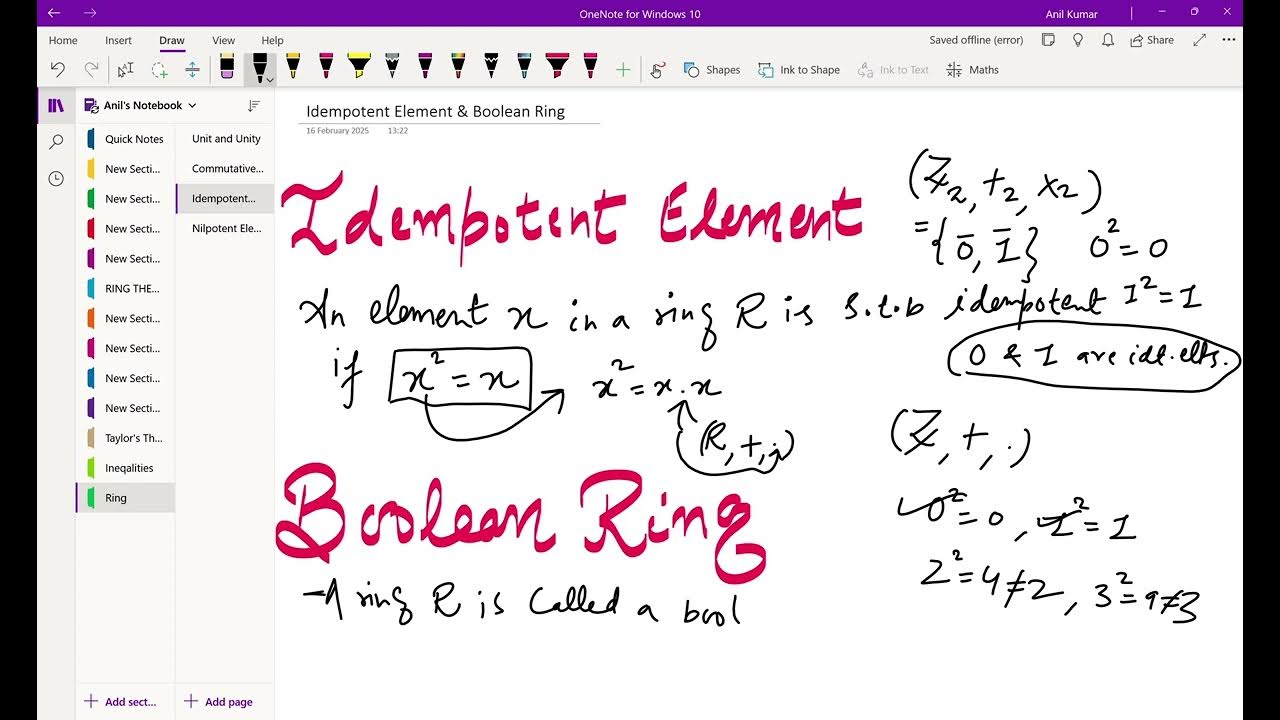 OneNote for Windows 10
Anil Kumar
Home Insert Draw View Help
Saved offline (error) Share
Shapes Ink to Shape Ink to Text Maths
Anil's Notebook
Quick Notes
New Secti...
New Secti...
New Secti...
New Secti...
RING THE...
New Secti...
New Secti...
New Secti...
New Secti...
Taylor's Th...
Ineqalities
Ring
Add sect...
Unit and Unity
Commutative...
Idempotent...
Nilpotent Ele...
Add page
Idempotent Element & Boolean Ring
16 February 2025 13:22
Idempotent Element
An element x in a ring R is s.t.b idempotent
if x² = x
x² = x.x
(R, +, .)
Boolean Ring
A ring R is called a bool
(Z₂, +₂, ×₂)
= {0̄, 1̄} 0² = 0
1² = 1
0 & 1 are idt. elts.
(Z, +, .)
0² = 0, 1² = 1
2² = 4 ≠ 2, 3² = 9 ≠ 3